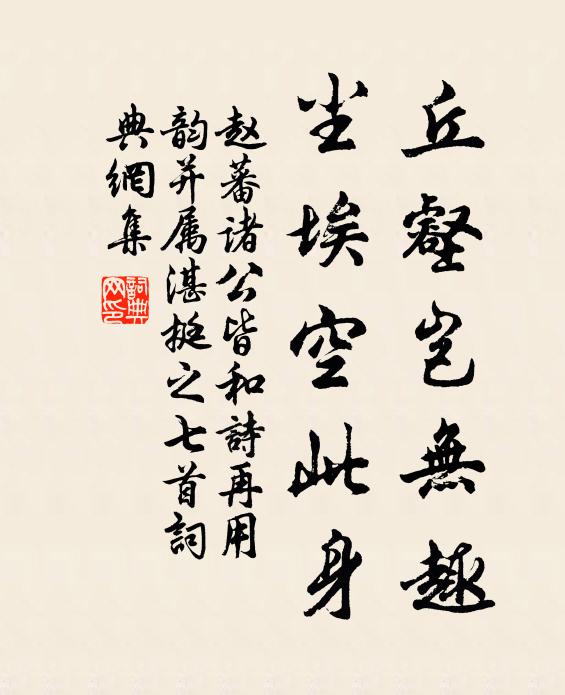 丘壑岂無趣
尘埃空此身
赵蕃诸公皆和詩再用
韵并属湛挺之七首詞
典網集
詞典网印